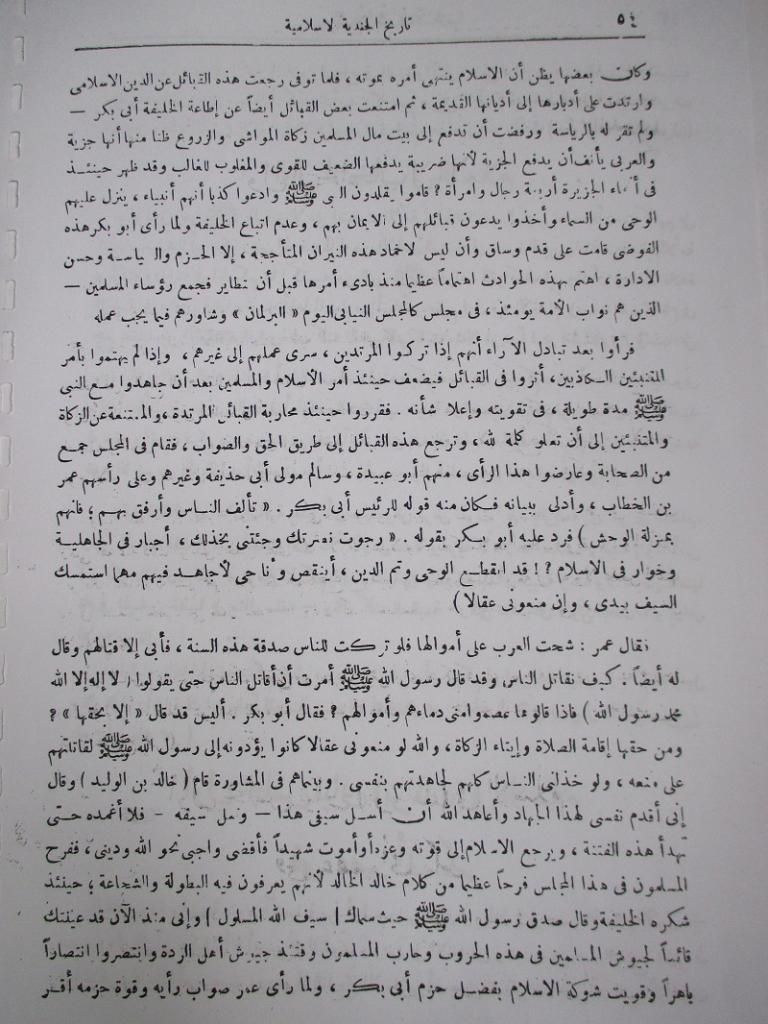 ٥٤ تاريخ الجندية لاسلامية
وكان بعضها يظن أن الاسلام ينتهى أمره بموته ، فلما توفى رجعت هذه القبائل عن الدين الاسلامى
وارتدت على أدبارها إلى أديانها القديمة ، ثم امتنعت بعض القبائل أيضاً عن إطاعة الخليفة أبى بكر —
ولم تقر له بالرياسة ورفضت أن تدفع إلى بيت مال المسلمين زكاة المواشى والزروع ظنا منها أنها جزية
والعربى يأنف أن يدفع الجزية لأنها ضريبة يدفعها الضعيف للقوى والمغلوب للغالب وقد ظهر حينئذ
فى أنحاء الجزيرة أربعة رجال وامرأة ? قاموا يقلدون النبى ﷺ وادعوا كذبا أنهم أنبياء ، ينزل عليهم
الوحى من السماء وأخذوا يدعون قبائلهم إلى الايمان بهم ، وعدم اتباع الخليفة ولما رأى أبو بكر هذه
الفوضى قامت على قدم وساق وأن ليس لاخماد هذه النيران المتأججة ، إلا الحزم والسياسة وحسن
الادارة ، اهتم بهذه الحوادث اهتماماً عظيما منذ بادىء أمرها قبل أن تتطاير فجمع رؤساء المسلمين —
الذين هم نواب الأمة يومئذ ، فى مجلس كالمجلس النيابى اليوم « البرلمان » وشاورهم فيما يجب عمله
فرأوا بعد تبادل الآراء أنهم إذا تركوا المرتدين ، سرى عملهم إلى غيرهم ، وإذا لم يهتموا بأمر
المتنبئين الكاذبين ، أثروا فى القبائل فيضعف حينئذ أمر الأسلام والمسلمين بعد أن جاهدوا مع النبى
ﷺ مدة طويلة ، فى تقويته وإعلا شأنه . فقرروا حينئذ محاربة القبائل المرتدة ، والممتنعة عن الزكاة
والمتنبئين إلى أن تعلو كلمة لله ، وترجع هذه القبائل إلى طريق الحق والصواب ، فقام فى المجلس جمع
من الصحابة وعارضوا هذا الرأى ، منهم أبو عبيدة ، وسالم مولى أبى حذيفة وغيرهم وعلى رأسهم عمر
بن الخطاب ، وأدلى ببيانه فكان منه قوله للرئيس أبى بكر . « تألف الناس وأرفق بهم ؛ فانهم
بمنزلة الوحش ) فرد عليه أبو بكر بقوله . « رجوت نصرتك وجئتنى بخذلك ، أجبار فى الجاهلية
وخوار فى الاسلام ? ! قد انقطع الوحى وتم الدين ، أينقص وأنا حى لأجاهد فيهم مهما استمسك
السيف بيدى ، وإن منعونى عقالا )
فقال عمر : شحت العرب على أموالها فلو تركت للناس صدقة هذه السنة ، فأبى إلا قتالهم وقال
له أيضاً . كيف نقاتل الناس وقد قال رسول الله ﷺ أمرت أن أقاتل الناس حتى يقولوا ( لا إله إلا الله
محمد رسول الله ) فاذا قالوها عصموا منى دماءهم وأموالهم ? فقال أبو بكر . أليس قد قال « إلا بحقها » ?
ومن حقها إقامة الصلاة وإيتاء الزكاة ، والله لو منعونى عقالا كانوا يؤدونه إلى رسول الله ﷺ لقاتلتهم
على منعه ، ولو خذلنى الناس كلهم لجاهدتهم بنفسى . وبينماهم فى المشاورة قام ( خالد بن الوليد ) وقال
إنى أقدم نفسى لهذا الجهاد وأعاهد الله أن أسل سيفى هذا — وسل سيفه - فلا أغمده حتى
تهدأ هذه الفتنة ، ويرجع الاسلام إلى قوته وعزه أو أموت شهيداً فأقضى واجبى نحو الله ودينى ، ففرح
المسلمون فى هذا المجلس فرحاً عظيما من كلام خالد الخالد لأنهم يعرفون فيه البطولة والشجاعة ؛ حينئذ
شكره الخليفة وقال صدق رسول الله ﷺ حيث سماك [ سيف الله المسلول ] وإنى منذ الآن قد عينتك
قائداً لجيوش المسلمين فى هذه الحروب وحارب المسلمون وقتئذ جيوش أهل الردة وانتصروا انتصاراً
باهراً وقويت شوكة الاسلام بفضل حزم أبى بكر ، ولما رأى عمر صواب رأيه وقوة حزمه أقر